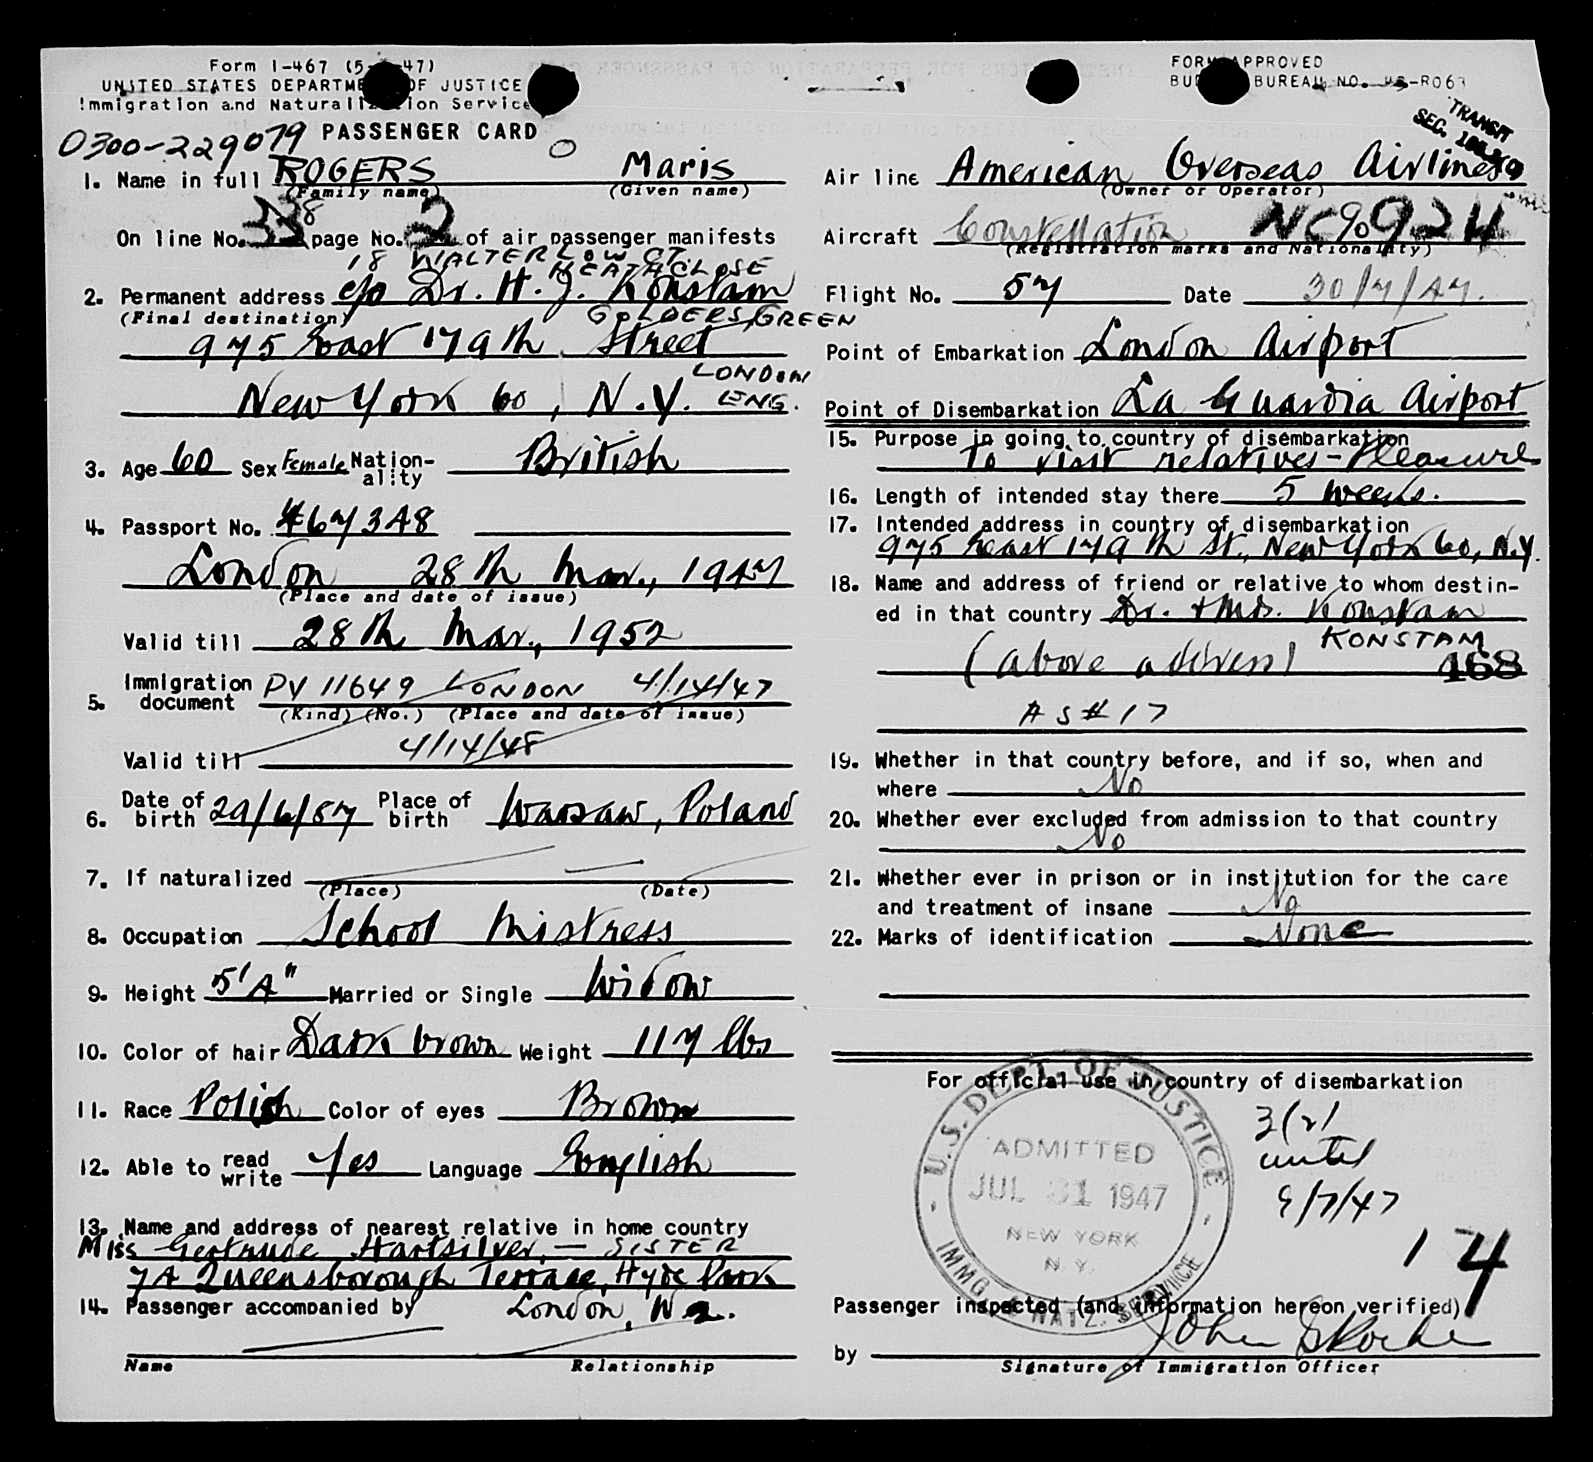 Form I-467 (5- -47)
UNITED STATES DEPARTMENT OF JUSTICE
Immigration and Naturalization Service
0300-229079 PASSENGER CARD
1. Name in full ROGERS Maris
(Family name) (Given name)
On line No. 8 page No. 2 of air passenger manifests
18 WALTER LOW CT.
HEATHCLOSE
2. Permanent address c/o Dr. H. J. Konstam
(Final destination) GOLDERS GREEN
975 East 179th Street
LONDON
New York 60, N.Y. ENG.
3. Age 60 Sex Female Nation-ality British
4. Passport No. 467348
London 28th Mar., 1947
(Place and date of issue)
Valid till 28th Mar., 1952
5. Immigration document PV 11649 LONDON 4/14/47
(Kind) (No.) (Place and date of issue)
Valid till 4/14/48
6. Date of birth 29/6/87 Place of birth Warsaw, Poland
7. If naturalized
(Place) (Date)
8. Occupation School Mistress
9. Height 5'4" Married or Single Widow
10. Color of hair Dark brown Weight 117 lbs
11. Race Polish Color of eyes Brown
12. Able to read write Yes Language English
13. Name and address of nearest relative in home country
Miss Gertrude Hartsilver, — SISTER
7A Queensborough Terrace, Hyde Park
14. Passenger accompanied by London, W2.
Name Relationship
FORM APPROVED
BUREAU NO. -R063
TRANSIT
SEC.
Air line American Overseas Airlines
(Owner or Operator)
Aircraft Constellation NC90924
(Registration marks and Nationality)
Flight No. 57 Date 30/7/47.
Point of Embarkation London Airport
Point of Disembarkation La Guardia Airport
15. Purpose in going to country of disembarkation
To visit relatives - Pleasure
16. Length of intended stay there 5 weeks.
17. Intended address in country of disembarkation
975 East 179th St., New York 60, N.Y.
18. Name and address of friend or relative to whom destin-
ed in that country Dr. & Mrs. Konstam
KONSTAM
(above address) 468
AS #17
19. Whether in that country before, and if so, when and
where No
20. Whether ever excluded from admission to that country
No
21. Whether ever in prison or in institution for the care
and treatment of insane No
22. Marks of identification None
For official use in country of disembarkation
U.S. DEPT. OF JUSTICE
ADMITTED
JUL 31 1947
NEW YORK
N.Y.
IMMG. & NATZ. SERVICE
3(2)
until
9/7/47
14
Passenger inspected (and information hereon verified)
by John
Signature of Immigration Officer